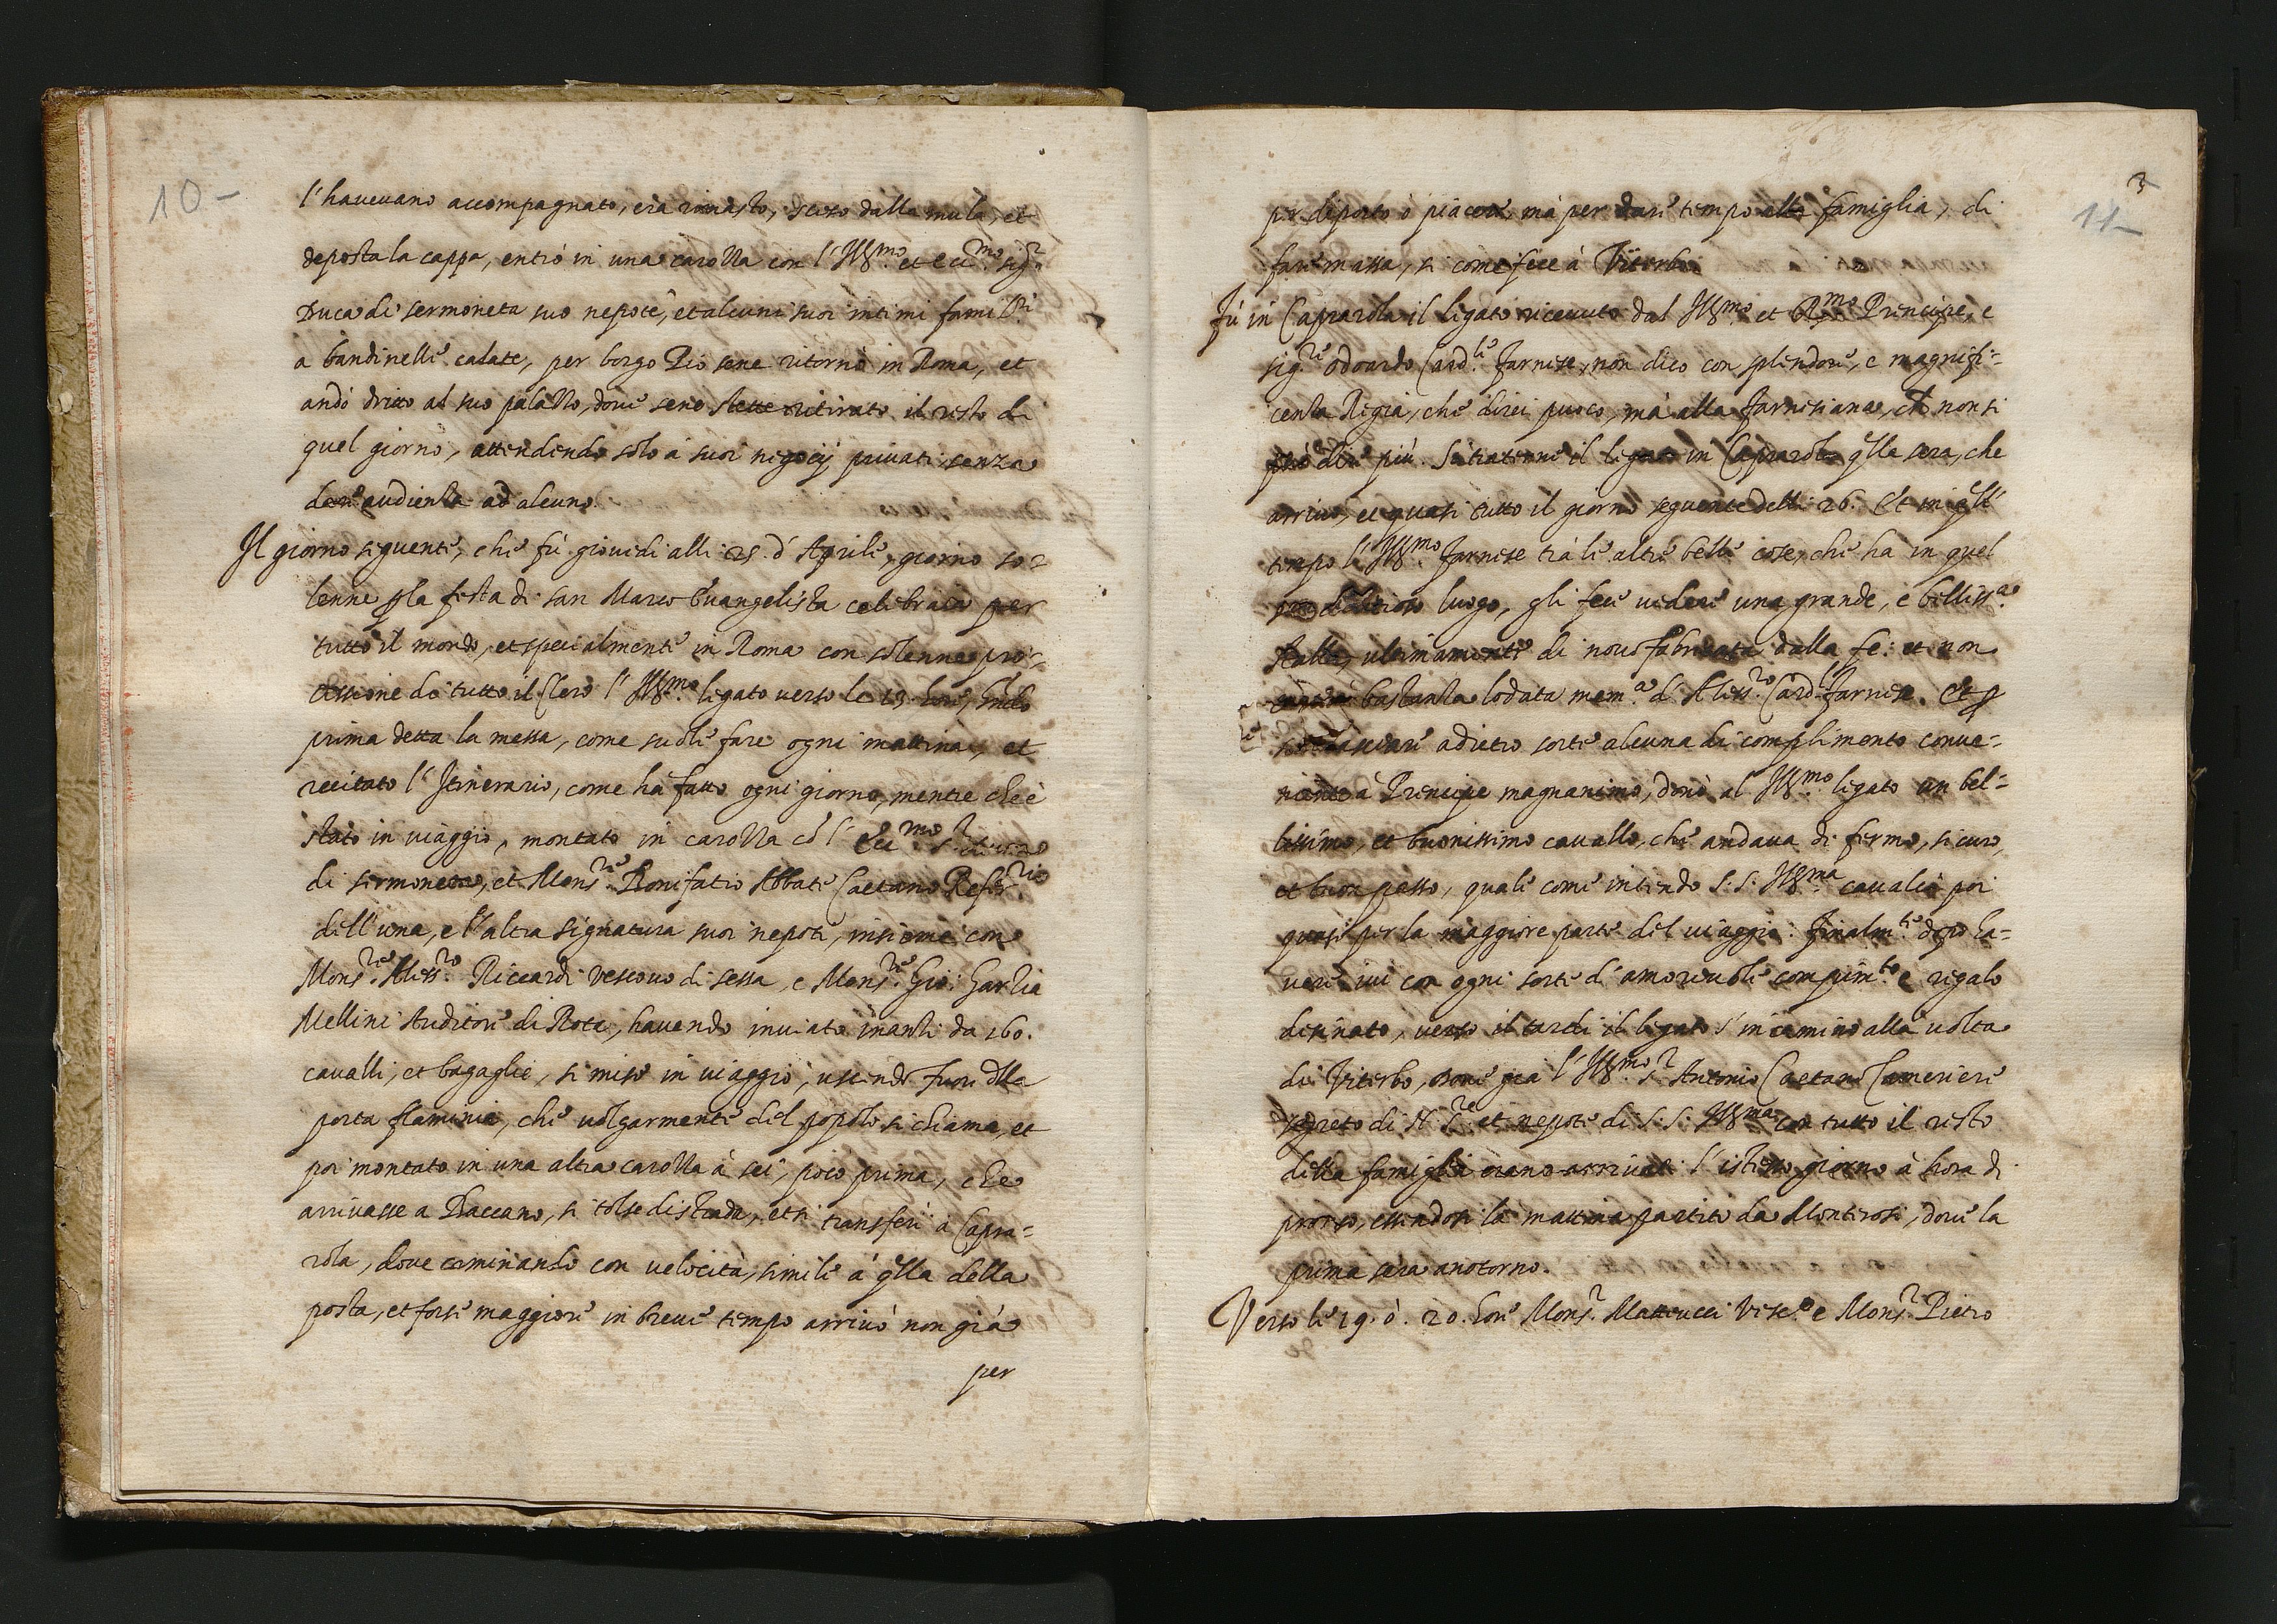 10-
l'havevano accompagnato, era rimasto, sceso dalla mula, et
deposta la cappa, entrò in una carozza con l'Ill.mo et ecc.mo sig.r
Duca di sermoneta suo nepote, et alcuni suoi intimi famil.ri
a bandinelle calate, per borgo Pio sene ritornò in Roma, et
andò dritto al suo palazzo, dove sene stette ritirato il resto di
quel giorno, attendendo solo à suoi negocij privati senza
dare audienza ad alcuno.
Il giorno seguente, che fù giovedi alli 25. d'Aprile, giorno so=
lenne p la festa di san Marco Evangelista celebrata per
tutto il mondo, et specialmente in Roma con solenne pro=
cessione di tutto il Clero l'Ill.mo legato verso le 13. hore,
prima detta la messa, come suole fare ogni mattina, et
recitato l'Itinerario, come hà fatto ogni giorno, mentre che è
stato in viaggio, montato in carozza cò l'Ecc.mo s.r
di sermoneta, et Mons.re Bonifatio Abbate Caetano Refer.rio
dell'una, e l'altra signatura suoi nepoti, insieme con
Mons.re Aless.ro Riccardi vescovo di sessa, e Mons.re Gio: Garzia
Mellini Auditore di Rota, havendo inviato inanzi da 160.
cavalli, et bagaglie, si mise in viaggio, uscendo fuori dlla
porta flaminia, che volgarmente del popolo si chiama, et
poi montato in una altra carozza à sei, poco prima, che
arrivasse a Baccano, si tolse di strada, et si transferì à Capra=
rola, dove caminando con velocità, simile à qlla della
posta, et forse maggiore in breve tempo arrivò non già
per
3
11-
per diporto ò piacere, mà per dare tempo alla famiglia, di
fare massa, si come fece à Viterbo.
Fù in Caprarola il legato ricevuto dal Ill.mo et R.mo Principe, e
sig.re Odoardo Card.le Farnese, non dico con splendore, e magnifi=
cenza Regia, che direi puoco, mà alla Farnesiana, che non si
può dire più. Si trattenne il legato in Caprarola qlla sera, che
arrivò, et quasi tutto il giorno seguente delli 26. Et in qsto
tempo l'Ill.mo Farnese trà le altre belle cose, che ha in quel
luogo, gli fece vedere una grande, e belliss.a
stalla, ultimamente di novo fabricata dalla fe: et non
bastanza lodata mem.a d'Aless.ro Card.l Farnese. Et p
non lasciare adietro sorte alcuna di complimento conve=
niente à Principe magnanimo, donò al Ill.mo legato un bel=
lissimo, et buonissimo cavallo, che andava di fermo, sicuro,
et buon passo, quale come intendo S: S: Ill.ma cavalcò poi
quasi per la maggiore parte del viaggio. Finalm.te dopo ha=
vere ivi con ogni sorte d'amorevole compim.to e regalo
desinato, verso il tardi il legato s'incaminò alla volta
di Viterbo, dove già l'Ill.mo s.r Antonio Caetano Cameriere
segreto di N. S.re et nepote di S: S: Ill.ma con tutto il resto
della famiglia erano arrivati l'istesso giorno à hora di
pranso, essendosi la mattina partiti da Monterosi, dove la
prima sera anotorno.
Verso le 19. ò. 20. hore Mons.r Matteucci Vesc.o e Mons.r Pietro